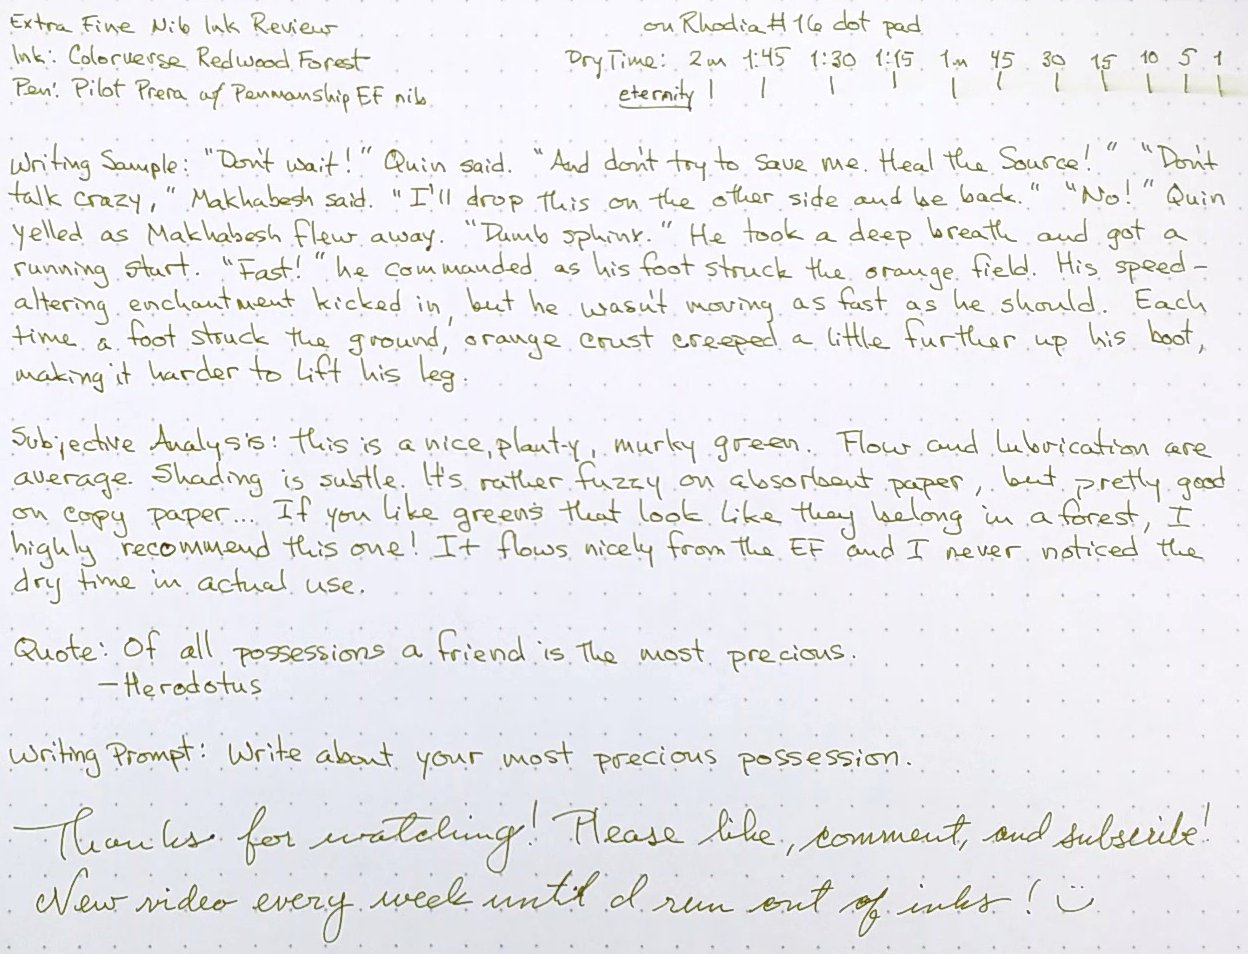 Extra Fine Nib Ink Review
on Rhodia #16 dot pad
Ink: Colorverse Redwood Forest
Dry Time: 2m 1:45 1:30 1:15 1m 45 30 15 10 5 1
Pen: Pilot Prera w/ Penmanship EF nib
eternity
Writing Sample: "Don't wait!" Quin said. "And don't try to save me. Heal the Source!" "Don't
talk crazy," Makhabesh said. "I'll drop this on the other side and be back." "No!" Quin
yelled as Makhabesh flew away. "Dumb sphinx." He took a deep breath and got a
running start. "Fast!" he commanded as his foot struck the orange field. His speed-
altering enchantment kicked in, but he wasn't moving as fast as he should. Each
time a foot struck the ground, orange crust creeped a little further up his boot,
making it harder to lift his leg.
Subjective Analysis: this is a nice, plant-y, murky green. Flow and lubrication are
average. Shading is subtle. It's rather fuzzy on absorbent paper, but pretty good
on copy paper... If you like greens that look like they belong in a forest, I
highly recommend this one! It flows nicely from the EF and I never noticed the
dry time in actual use.
Quote: Of all possessions a friend is the most precious.
-Herodotus
Writing Prompt: Write about your most precious possession.
Thanks for watching! Please like, comment, and subscribe!
New video every week until I run out of inks! :)